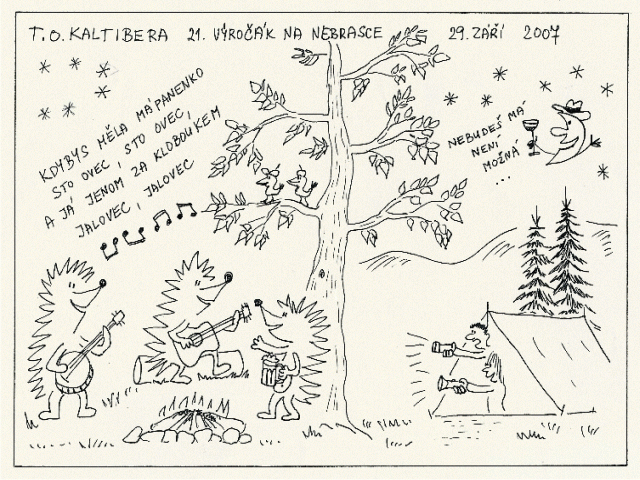 T.O. KALTIBERA 21. VÝROČÁK NA NEBRASCE 29. ZÁŘÍ 2007
KDYBYS MĚLA MÁ PANENKO
STO OVEC, STO OVEC,
A JÁ JENOM ZA KLOBOUKEM
JALOVEC, JALOVEC
NEBUDEŠ MÁ
NENÍ
MOŽNÁ
...